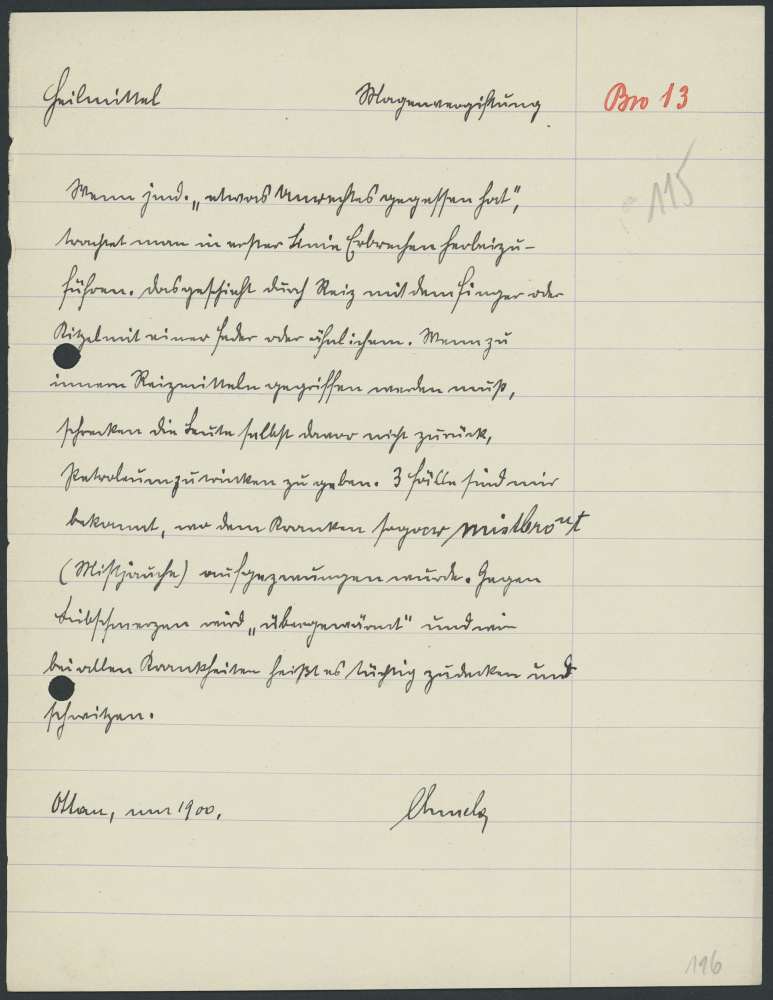 Heilmittel Magenvergiftung Bro 13
115
Wenn jmd. „etwas Unrechtes gegessen hat",
trachtet man in erster Linie Erbrechen herbeizu-
führen. Das geschieht durch Reiz mit dem Finger oder
Kitzel mit einer Feder oder ähnlichem. Wenn zu
innern Reizmitteln gegriffen werden muß,
schrecken die Leute selbst davor nicht zurück,
Petroleum zu trinken zu geben. 3 Fälle sind mir
bekannt, wo dem Kranken sogar
(Mistjauche) aufgezwungen wurde. Gegen
Leibschmerzen wird „übergewärmt" und wie
bei allen Krankheiten heißt es tüchtig zudecken und
schwitzen.
Ottau, um 1900.
196